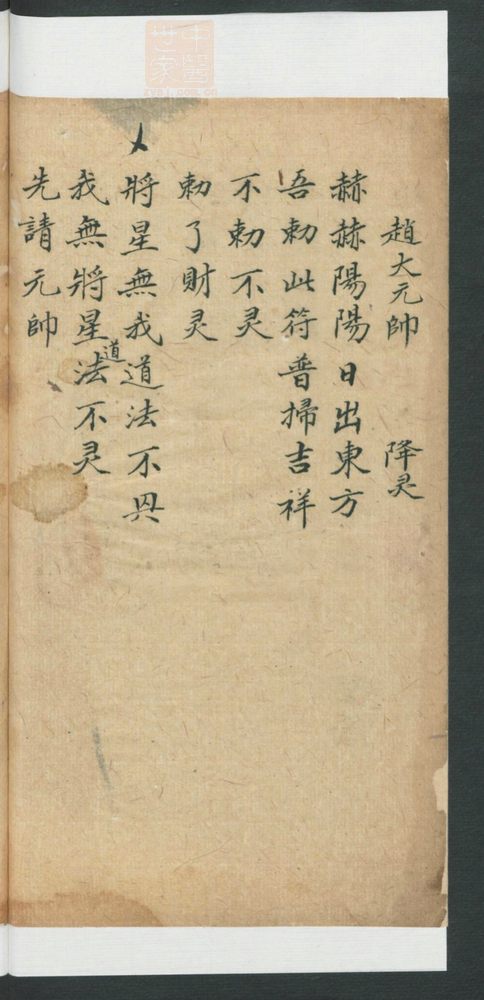 趙大元帥　降灵
赫赫陽陽日出東方
吾勅此符普掃吉祥
不勅不灵
勅了財灵
將星無我道法不具
我無將星道法不灵
先請元帥